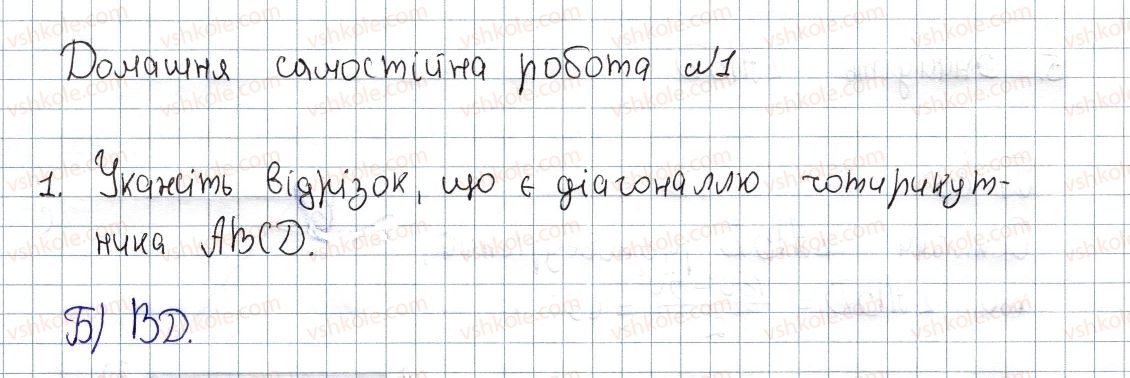 Домашня самостійна робота №1
1. Укажіть відрізок, що є діагоналлю чотирикут-
ника ABCD.
Б) BD.